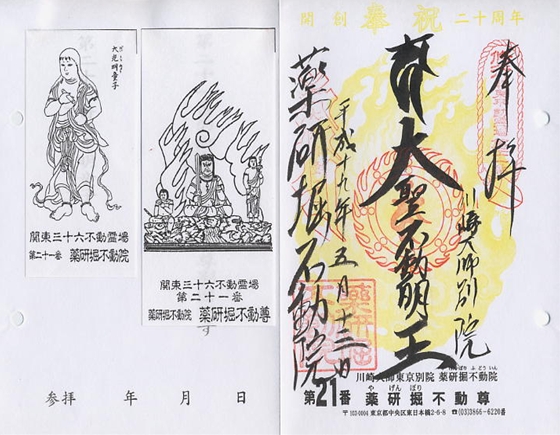 大光明童子
関東三十六不動霊場
第二十一番 薬研堀不動院
関東三十六不動霊場
第二十一番
薬研堀不動院 薬研堀不動尊
参拝 年 月 日
開創 奉祝 二十周年
奉拝
川崎大師別院
大聖不動明王
平成十九年五月十三日
薬研堀不動院
川崎大師東京別院 薬研堀不動院
やげんぼり
第21番 薬研堀不動尊
〒103-0004 東京都中央区東日本橋2-6-8 ☎(03)3866-6220番